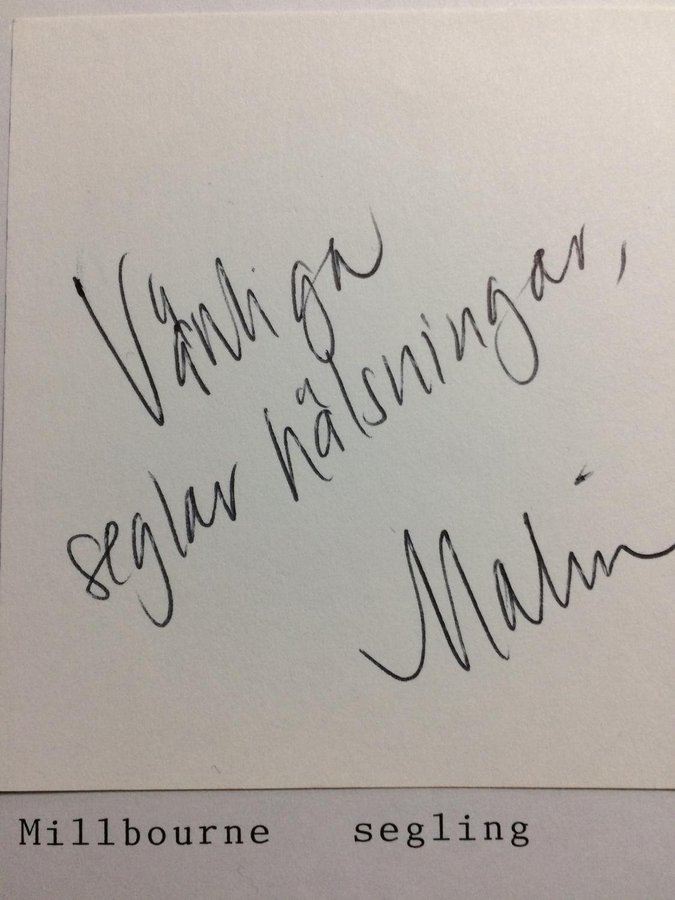 Vänliga
seglar hälsningar,
Malin
Millbourne segling